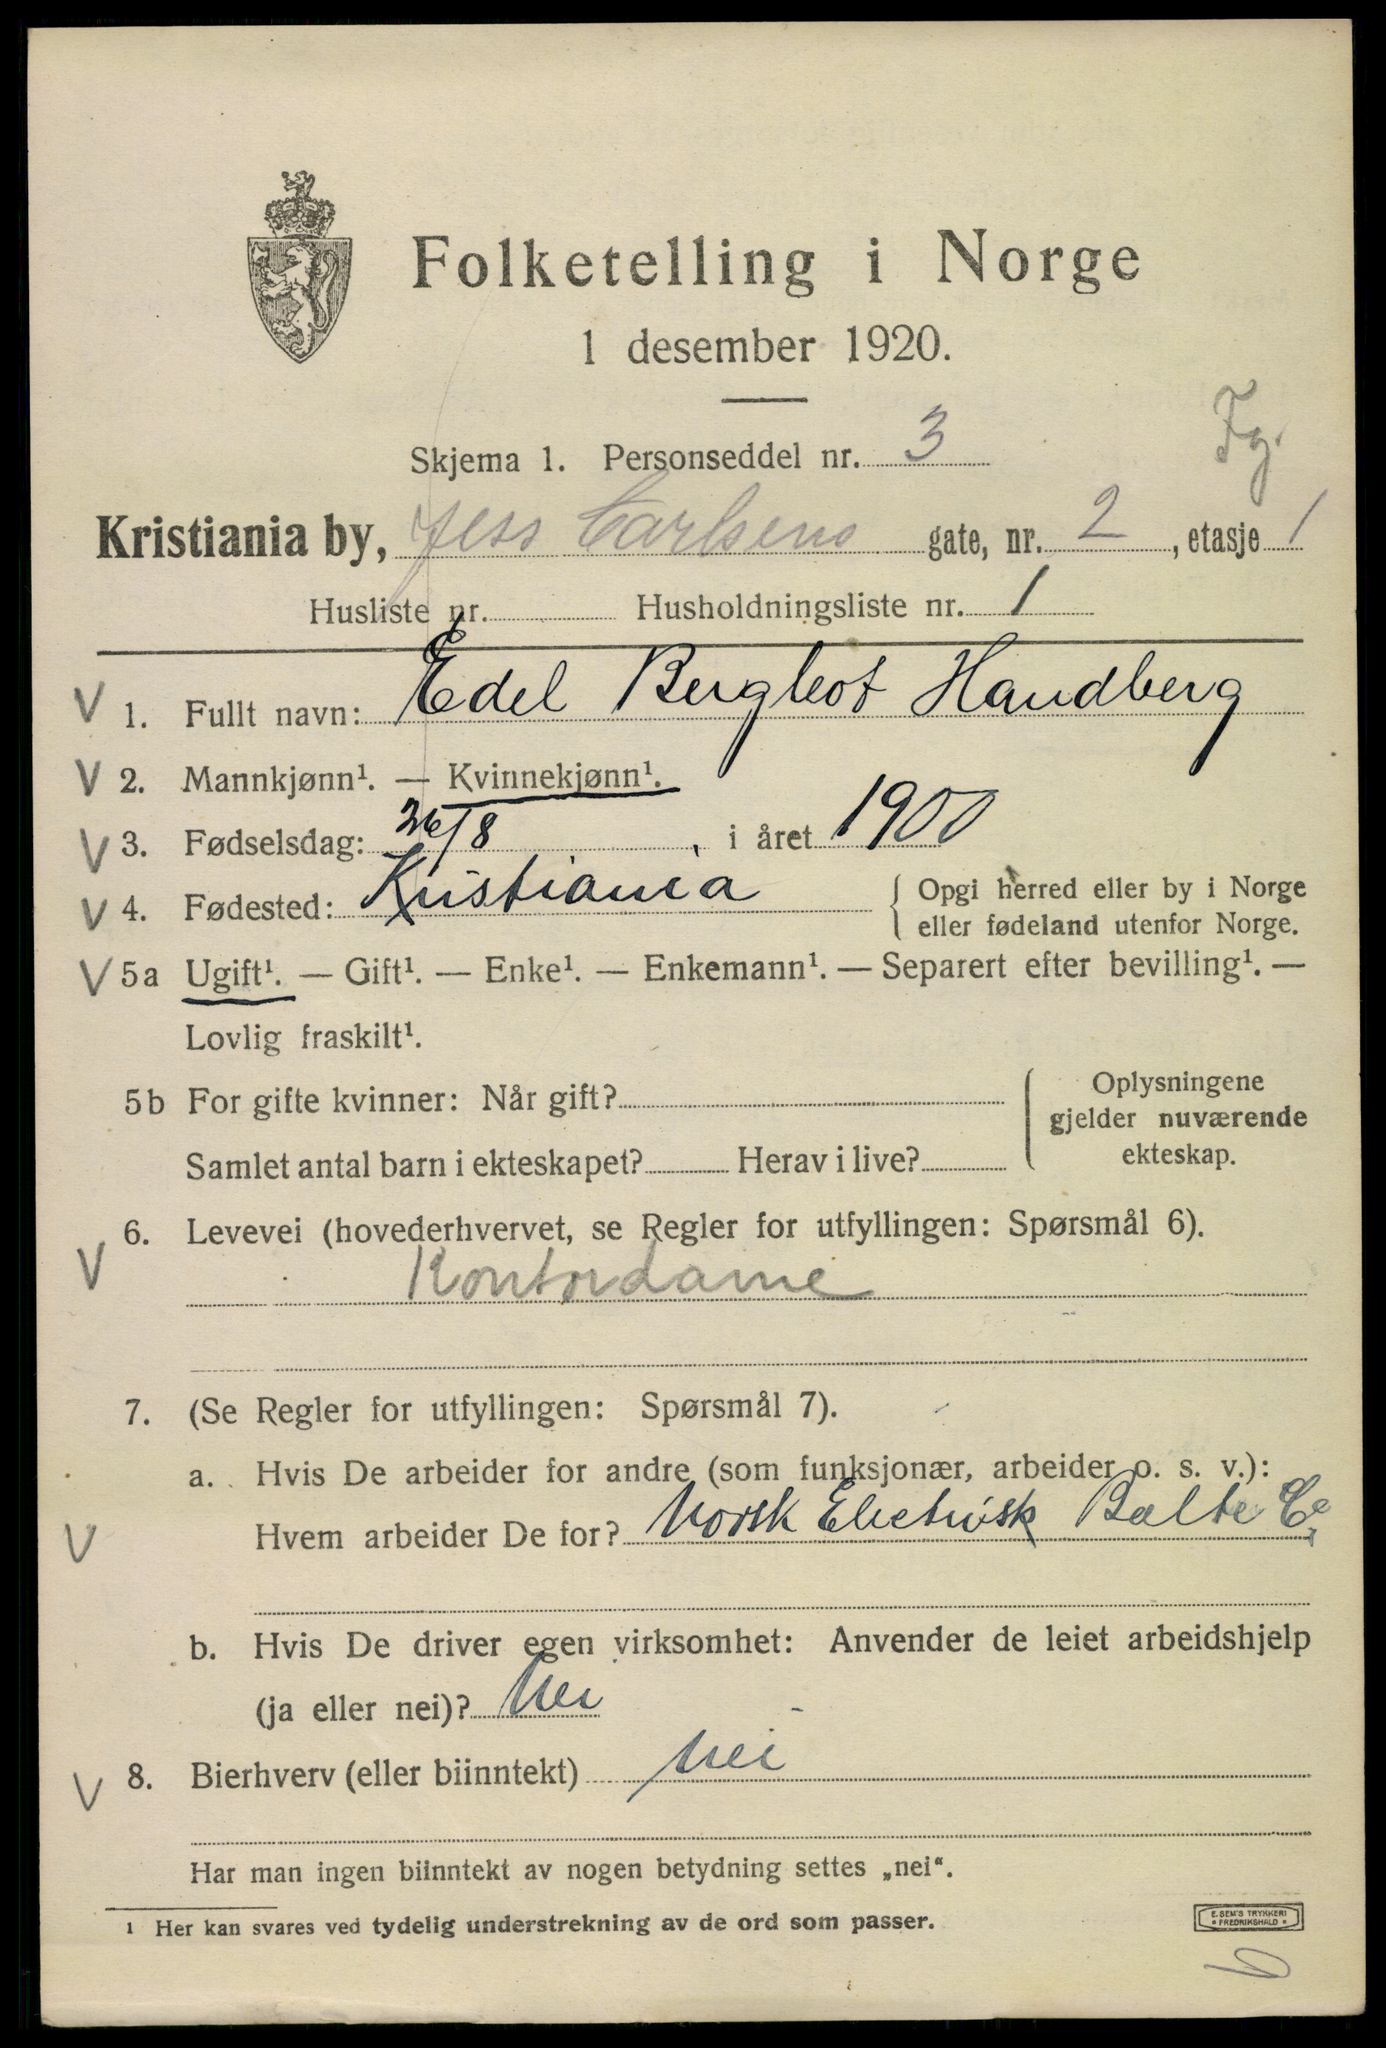 Folketelling i Norge
1 desember 1920.
Skjema 1. Personseddel nr. 3
Fg.
Kristiania by, Jess Carlsens gate, nr. 2, etasje 1
Husliste nr. Husholdningsliste nr. 1
V 1. Fullt navn: Edel Bergliot Handberg
V 2. Mannkjønn¹. — Kvinnekjønn¹.
V 3. Fødselsdag: 26/8, i året 1900
V 4. Fødested: Kristiania { Opgi herred eller by i Norge
eller fødeland utenfor Norge.
V 5a Ugift¹. — Gift¹. — Enke¹. — Enkemann¹. — Separert efter bevilling¹. —
Lovlig fraskilt¹.
5b For gifte kvinner: Når gift? { Oplysningene
gjelder nuværende
Samlet antal barn i ekteskapet? Herav i live? ekteskap.
6. Levevei (hovederhvervet, se Regler for utfyllingen: Spørsmål 6).
V Kontordame
7. (Se Regler for utfyllingen: Spørsmål 7).
a. Hvis De arbeider for andre (som funksjonær, arbeider o. s. v.):
V Hvem arbeider De for? Norsk Electrisk Bælte Co
b. Hvis De driver egen virksomhet: Anvender de leiet arbeidshjelp
(ja eller nei)? Nei
V 8. Bierhverv (eller biinntekt) nei
Har man ingen biinntekt av nogen betydning settes „nei“.
¹ Her kan svares ved tydelig understrekning av de ord som passer.
E. SEM'S TRYKKERI
FREDRIKSHALD